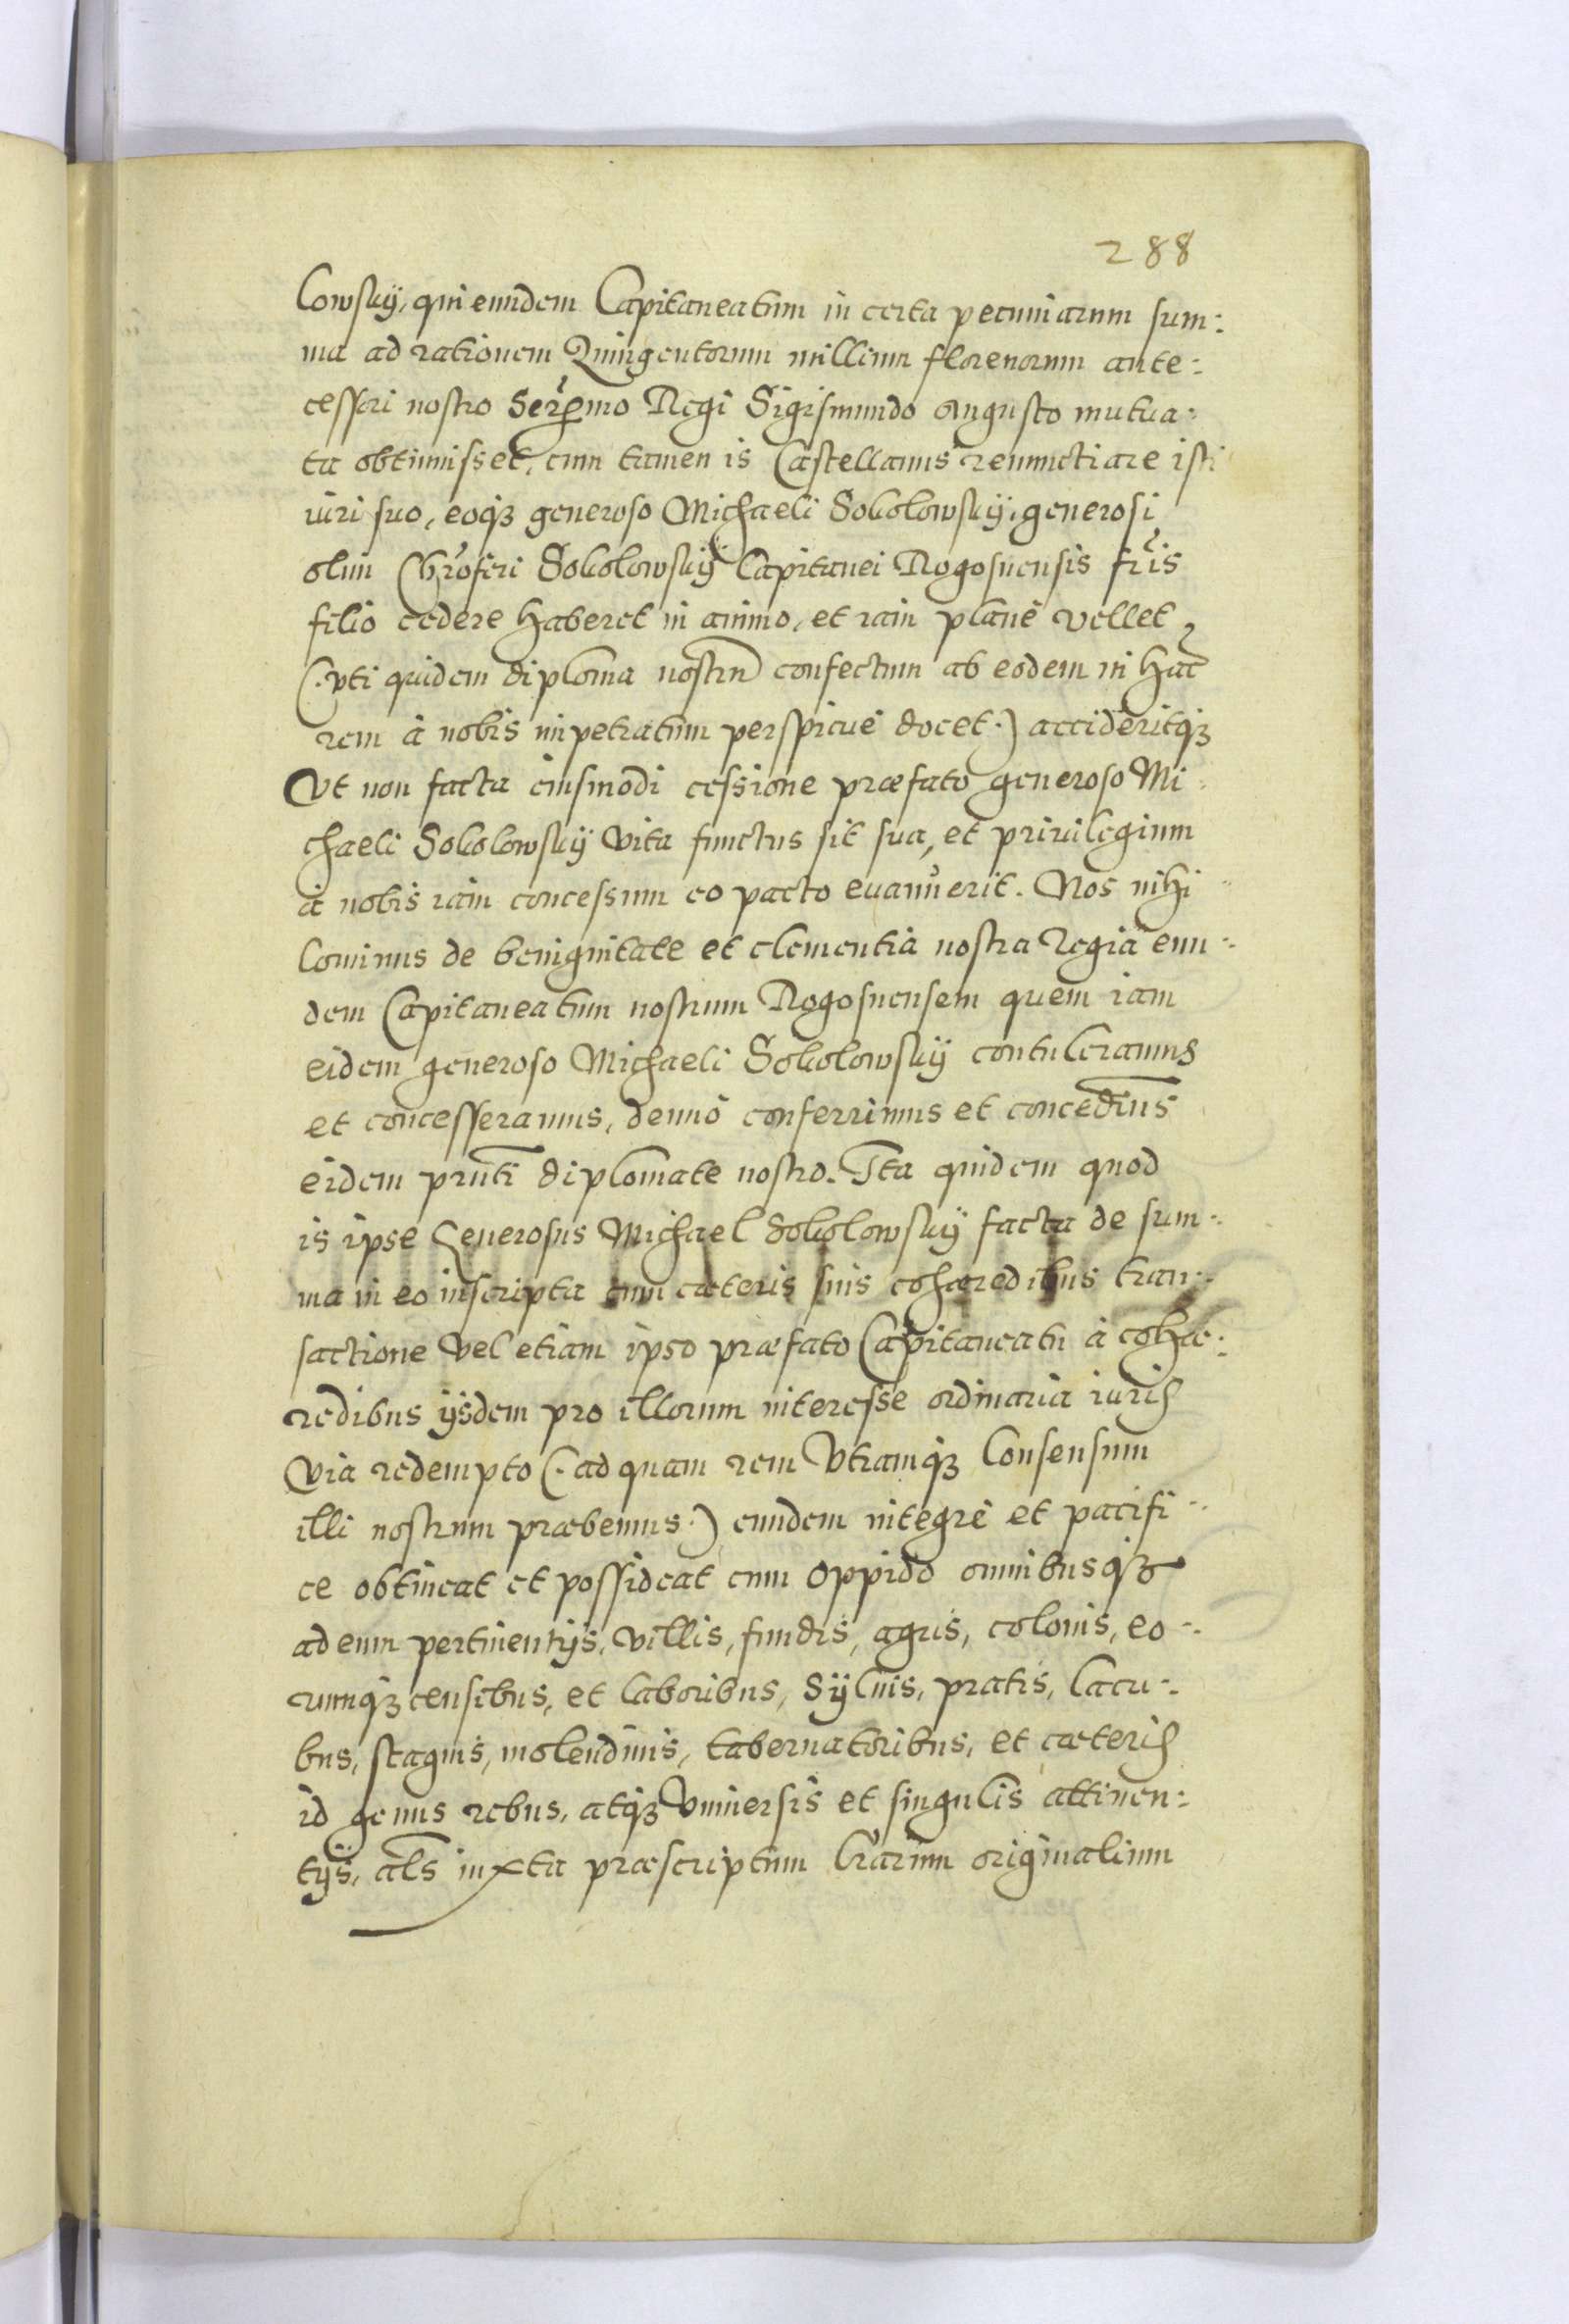 288
lowskÿ, qui eundem Capitaneatum in certa pecuniarum sum:
ma ad rationem Quingentorum millium florenorum ante:
cessori nostro Serẽmo Regi Sigismundo Augusto mutua:
ta obtinuisset, cum tamen is Castellanus renunctiare isti
iuri suo, eoqꝫ generoso Michaeli Sokolowskÿ, generosi
olim Chrõferi Sokolowskÿ Capitanei Rogosnensis fr̃is
filio cedere haberet in animo, et iam planè vellet
(. vti quidem diploma nostrũ confectum ab eodem in hãc
rem à nobis impetratum perspicuè docet .) accideritqꝫ
Vt non facta eiusmodi cessione præfato generoso Mi:
chaeli Sokolowskÿ vita functus sit sua, et priuilegium
à nobis iam concessum eo pacto euanuerit. Nos nihi:
lominus de benignitate et clementia nostra Regia eun:
dem Capitaneatum nostrum Rogosnensem quem iam
eidem generoso Michaeli Sokolowskÿ contuleramus
et concesseramus, denuò conferrimus et concedim̃us
eidem prũti diplomate nostro. Ita quidem quod
is ipse Generosus Michael Sokolowskÿ facta de sum:
ma in eo inscripta cum cæteris suis cohæredibus tran:
sactione vel etiam ipso præfato Capitaneatu à cohæ:
redibus ÿsdem pro illorum interesse ordinaria iuris
via redempto (. ad quam rem vtramqꝫ Consensum
illi nostrum præbemus .) eundem integrè et pacifi:
ce obtineat et possideat cum oppido omnibusqꝫ
ad eum pertinentÿs, villis, fundis, agris, colonis, eo:
rumqꝫ censibus, et laboribus, Sÿluis, pratis, lacu:
bus, stagnis, molendinis, tabernatoribus, et cæteris
id genus rebus, atqꝫ vniuersis et singulis attinen:
tÿs, al̃s iuxta præscriptum lr̃arum originalium